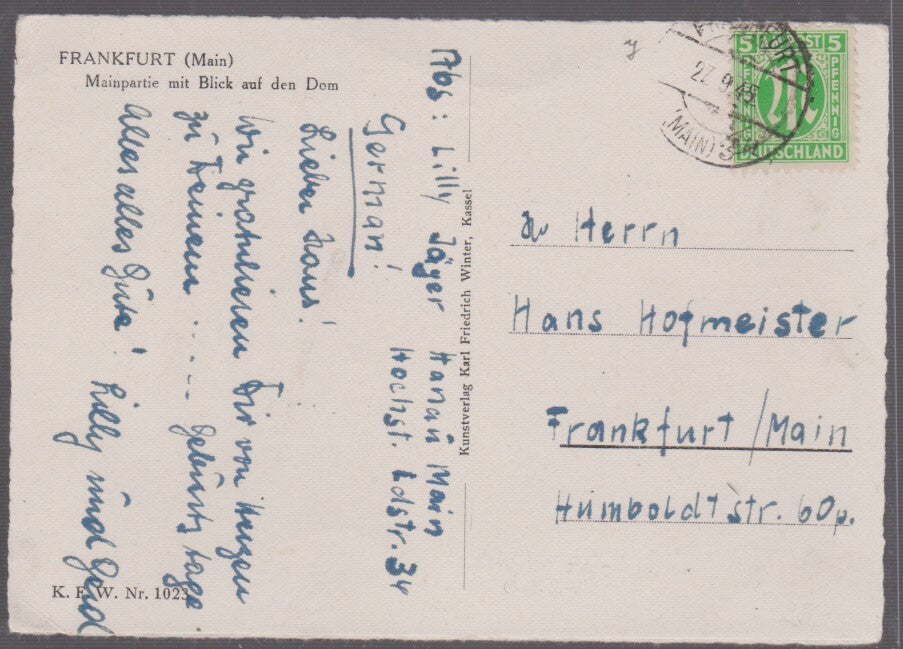 FRANKFURT (Main)
Mainpartie mit Blick auf den Dom
Abs: Lilly Jäger Hanau Main
Höchst. Ldstr. 34
German!
Lieber Hans!
Wir gratulieren Dir von Herzen
zu Deinem .... Geburtstage
Alles alles Gute! Lilly und Gerd
K. F. W. Nr. 1023
Kunstverlag Karl Friedrich Winter, Kassel
FRANKFURT
27.9.45
(MAIN)
5 POST 5
PFENNIG
PFENNIG
M
DEUTSCHLAND
Herrn
Hans Hofmeister
Frankfurt/Main
Humboldtstr. 60p.